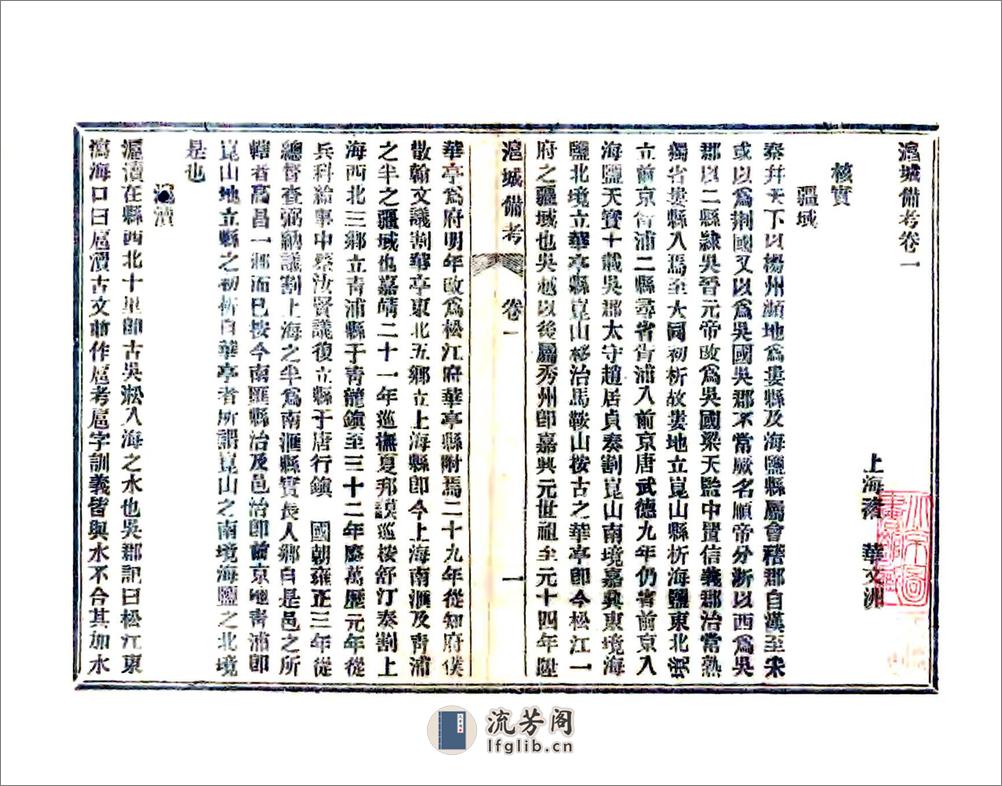 滬城備考卷一
上海褚　華文洲
核實
疆域
秦并天下以揚州瀕地爲婁縣及海鹽縣屬會稽郡自漢至宋
或以爲荆國又以爲吳國吳郡不常厥名順帝分浙以西爲吳
郡以二縣隷吳晉元帝改爲吳國梁天監中置信義郡治常熟
獨省婁縣入焉至大同初析故婁地立崑山縣析海鹽東北
立前京胥浦二縣尋省胥浦入前京唐武德九年仍省前京入
海鹽天寶十載吳郡太守趙居貞奏割崑山南境嘉興東境海
鹽北境立華亭縣崑山移治馬鞍山按古之華亭卽今松江一
府之疆域也吳越以後屬秀州卽嘉興元世祖至元十四年陞
滬城備考　卷一　一
華亭爲府明年改爲松江府華亭縣附焉二十九年從知府僕
散翰文議割華亭東北五鄉立上海縣卽今上海南滙及青浦
之半之疆域也嘉靖二十一年巡撫夏邦謨巡按舒汀奏割上
海西北三鄉立青浦縣于青龍鎮至三十二年廢萬歷元年從
兵科給事中蔡汝賢議復立縣于唐行鎮　國朝雍正三年從
總督查弼納議割上海之半爲南滙縣實長人鄉自是邑之所
轄者高昌一鄉而已按今南匯縣治及邑治卽前京地青浦卽
崑山地立縣之初析自華亭者所謂崑山之南境海鹽之北境
是也
滬瀆
滬瀆在縣西北十里卽古吳淞入海之水也吳郡記曰松江東
瀉海口曰扈瀆古文並作扈考扈字訓義皆與水不合其加水
流芳阁
lfglib.cn